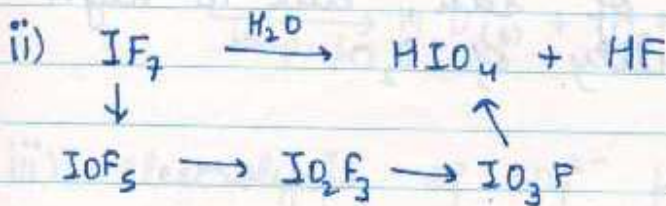 ii) IF₇ H₂O → HIO₄ + HF
↓ ↖
IOF₅ → IO₂F₃ → IO₃F